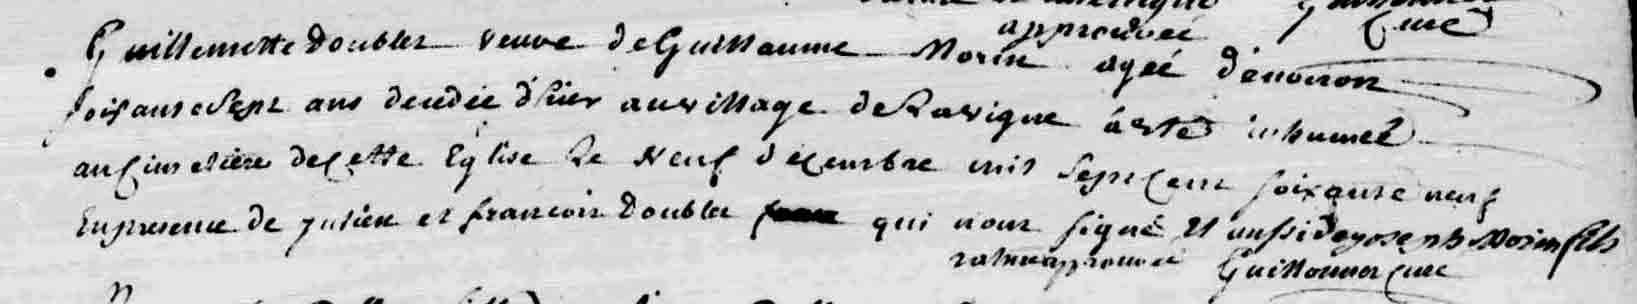 approuvée Curé
Guillemette Doublet veuve de Guillaume Morin agéé d'environ
soixante sept ans décédée d'hier au village de Ravigne à esté inhumeé
au Cimetière de Cette Eglise le Neuf décembre mil sept Cent soixante neuf
En presence de julien et francois Doublet qui n'ont signé Et aussi de Morin fils
rature approuvée Guillommer Curé